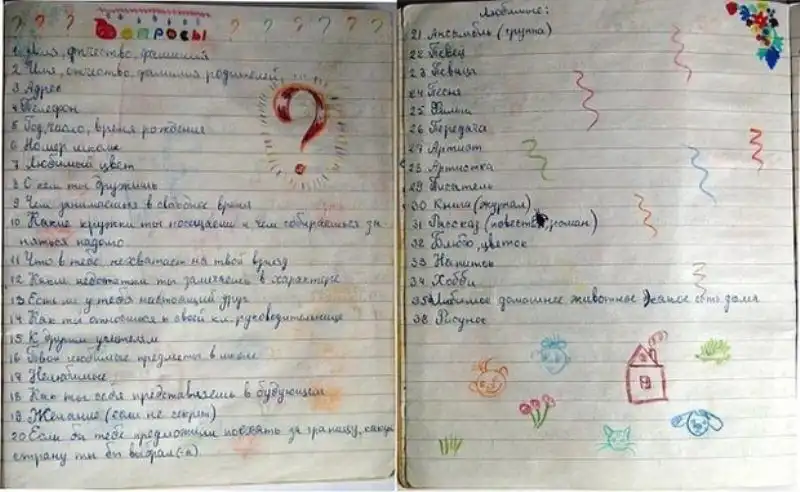 Вопросы
1 Имя, отчество, фамилия
2 Имя, отчество, фамилия родителей
3 Адрес
4 Телефон
5 Год, число, время рождения
6 Номер школы
7 Любимый цвет
8 С кем ты дружишь
9 Чем занимаешься в свободное время
10 Какие кружки ты посещаешь и чем собираешься за
няться надолго
11 Что в тебе нехватает на твой взгляд
12 Какие недостатки ты замечаешь в характере
13 Есть ли у тебя настоящий друг
14 Как ты относишься к своей кл. руководительнице
15 К другим учителям
16 Твои любимые предметы в школе
17 Нелюбимые
18 Как ты себя представляешь в будующем
19 Желание (если не секрет)
20 Если бы тебе предложили поехать за границу, какую
страну ты бы выбрал(-а)
Любимые:
21 Ансамбль (группа)
22 Певец
23 Певица
24 Песня
25 Фильм
26 Передача
27 Артист
28 Артистка
29 Писатель
30 Книга (журнал)
31 Рассказ (повесть, роман)
32 Блюдо, цветок
33 Напиток
34 Хобби
35 Любимое домашнее животное какое есть дома
36 Рисунок